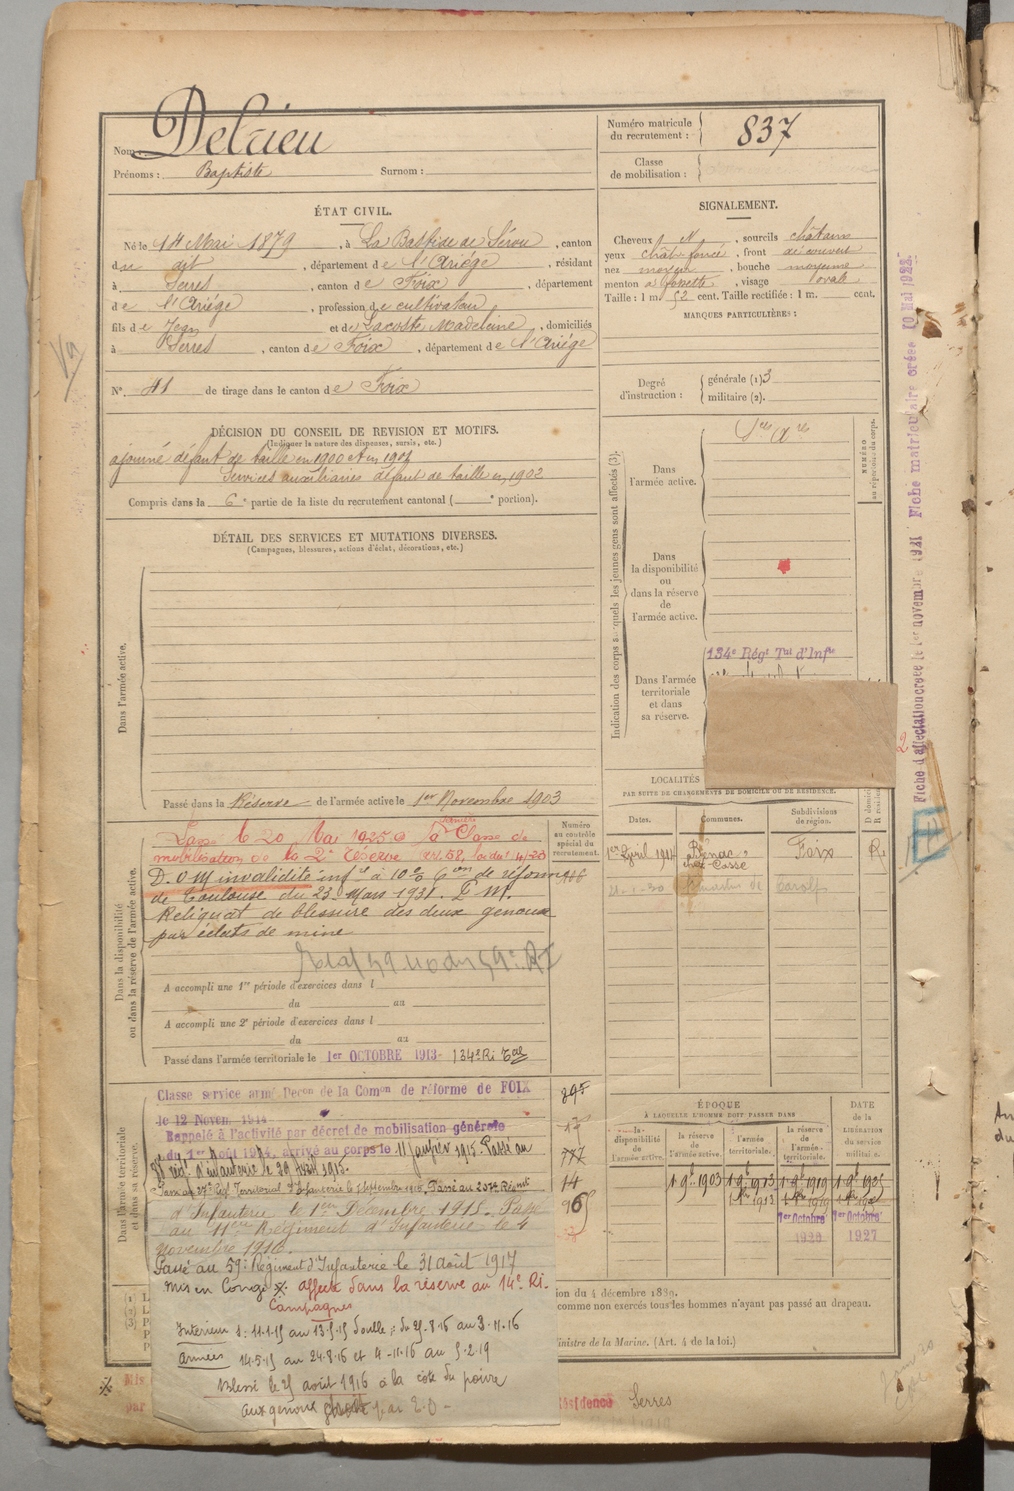 Nom : Delrieu
Prénoms : Baptiste Surnom :
Numéro matricule du recrutement : 837
Classe de mobilisation :
ÉTAT CIVIL.
Né le 14 Mai 1879, à La Bastide de Sérou, canton
du dit, département de l'Ariége, résidant
à Serres, canton de Foix, département
de l'Ariége, profession de cultivateur
fils de Jean et de Lacoste Madeleine, domiciliés
à Serres, canton de Foix, département de l'Ariége
N° 41 de tirage dans le canton de Foix
SIGNALEMENT.
Cheveux N, sourcils châtains
yeux chât-foncé, front découvert
nez moyen, bouche moyenne
menton à fossette, visage ovale
Taille : 1 m. 52 cent. Taille rectifiée : 1 m. cent.
MARQUES PARTICULIÈRES :
Degré d'instruction : générale (1) 3
militaire (2).
DÉCISION DU CONSEIL DE REVISION ET MOTIFS.
(Indiquer la nature des dispenses, sursis, etc.)
ajourné défaut de taille en 1900 et en 1901
Services auxiliaires défaut de taille en 1902
Compris dans la 6e partie de la liste du recrutement cantonal ( e portion).
DÉTAIL DES SERVICES ET MUTATIONS DIVERSES.
(Campagnes, blessures, actions d'éclat, décorations, etc.)
Dans l'armée active.
Passé dans la Réserve de l'armée active le 1er Novembre 1903
Indication des corps auxquels les jeunes gens sont affectés (3).
NUMÉRO au répertoire du corps.
Dans l'armée active.
Dans la disponibilité ou dans la réserve de l'armée active.
Dans l'armée territoriale et dans sa réserve.
134e Régt Tal d'Infie
LOCALITÉS
PAR SUITE DE CHANGEMENTS DE DOMICILE OU DE RÉSIDENCE.
Dates. Communes. Subdivisions de région.
1er Avril 1914 Bénac, Foix R.
21-1-30
Dans la disponibilité ou dans la réserve de l'armée active.
Numéro au contrôle spécial du recrutement.
le 20 Mai 1925 à la Classe de
mobilisation de la 2e Réserve
D. O M invalidité infre à 10% Con de réforme
de Toulouse du 23 Mars 1931. P. M.
Reliquat de blessure des deux genoux
par éclats de mine
A accompli une 1re période d'exercices dans l
du au
A accompli une 2e période d'exercices dans l
du au
Passé dans l'armée territoriale le 1er OCTOBRE 1913 - 134e Ri Tal
Dans l'armée territoriale et dans sa réserve.
Classe service armé Decon de la Comon de réforme de FOIX
le 12 Novem. 1914
Rappelé à l'activité par décret de mobilisation générale
du 1er Août 1914, arrivé au corps le 11 janvier 1915. Passé au
régt d'infanterie le 29 Avril 1915.
Passé au 37e Régt Territorial d'Infanterie le 1 Septembre 1915, Passé au 207e Régiment
d'Infanterie le 1er Décembre 1915. Passé
au 11eme Régiment d'Infanterie le 4
novembre 1916.
Passé au 59e Régiment d'Infanterie le 31 août 1917
mis en Congé affecté dans la réserve au 14e Ri.
Campagnes
Intérieur s: 11-1-15 au 13-5-15 Double: du 25-8-16 au 3-11-16
Armées 14-5-15 au 24-8-16 et 4-11-16 au 5-2-19
Blessé le 25 août 1916 à la côte du poivre
aux genoux par E.O -
895
14
ÉPOQUE
À LAQUELLE L'HOMME DOIT PASSER DANS
la disponibilité de l'armée active. la réserve de l'armée active. l'armée territoriale. la réserve de l'armée territoriale. DATE de la LIBÉRATION du service militaire.
1 9b 1903 1 9b 1913 1 9b 1919 1 9b 1925
1er Octobre 1er Octobre
1920 1927
ion du 4 décembre 1889.
comme non exercés tous les hommes n'ayant pas passé au drapeau.
inistre de la Marine. (Art. 4 de la loi.)
Mis
par
Résidence Serres
Fiche d'affectation créée le 1er novembre 1921 Fiche matriculaire créée 10 Mai 1922